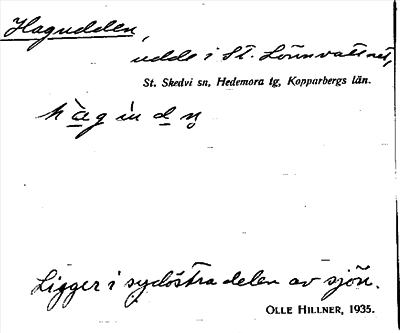 Hagudden,
udde i St. Lönnvattnet,
St. Skedvi sn, Hedemora tg, Kopparbergs län.
Ligger i sydöstra delen av sjön.
OLLE HILLNER, 1935.